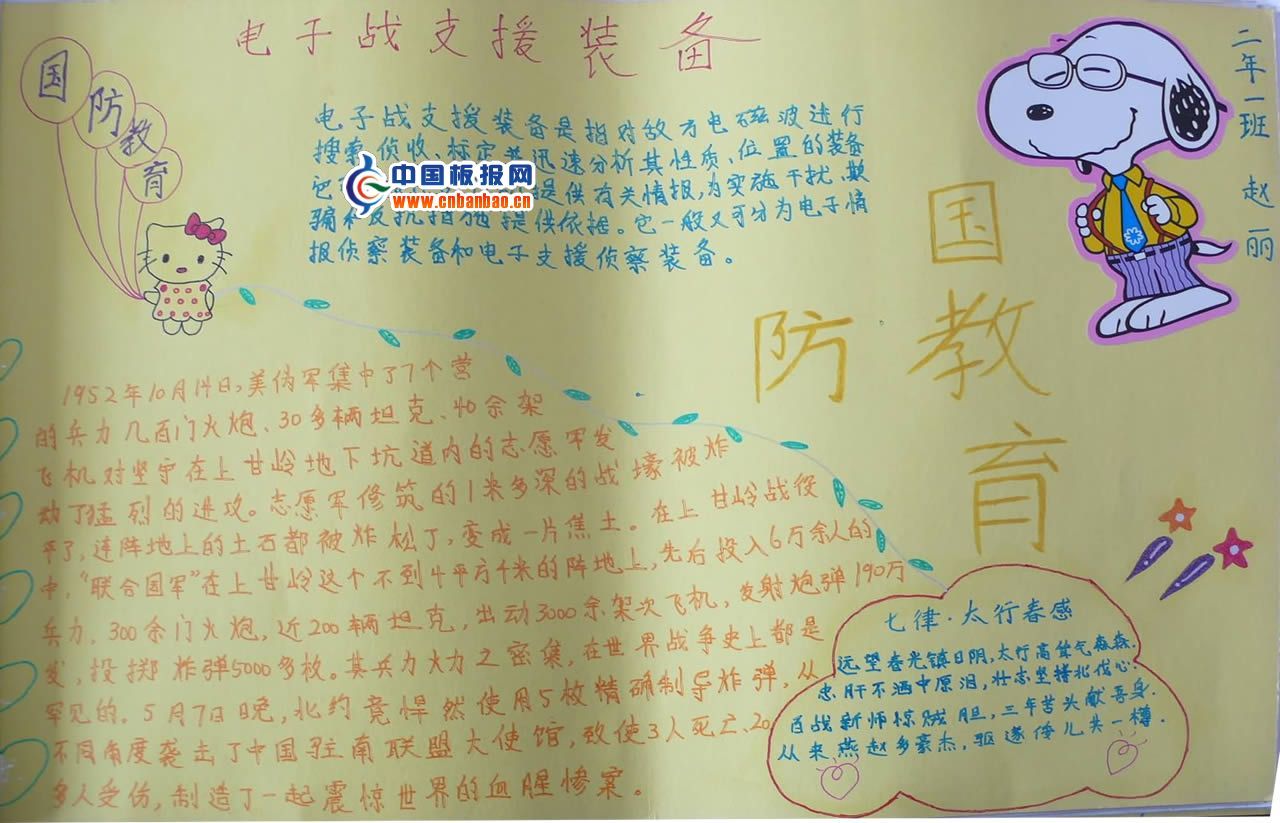 电子战支援装备
国防教育
二年一班 赵丽
电子战支援装备是指对敌方电磁波进行
搜索、侦收、标定并迅速分析其性质、位置的装备
提供有关情报,为实施干扰、欺
骗和反抗措施提供依据。它一般又可分为电子情
报侦察装备和电子支援侦察装备。
中国板报网
www.cnbanbao.cn
国
防教
育
1952年10月14日,美伪军集中了7个营
的兵力几百门火炮、30多辆坦克、40余架
飞机对坚守在上甘岭地下坑道内的志愿军发
动了猛烈的进攻。志愿军修筑的1米多深的战壕被炸
平了,连阵地上的土石都被炸松了,变成一片焦土。在上甘岭战役
中,“联合国军”在上甘岭这个不到4平方千米的阵地上,先后投入6万余人的
兵力,300余门火炮,近200辆坦克,出动3000余架次飞机,发射炮弹190万
发,投掷炸弹5000多枚。其兵力火力之密集,在世界战争史上都是
罕见的。5月7日晚,北约竟悍然使用5枚精确制导炸弹,从
不同角度袭击了中国驻南联盟大使馆,致使3人死亡、20
多人受伤,制造了一起震惊世界的血腥惨案。
七律·太行春感
远望春光镇日阴,太行高耸气森森.
忠肝不洒中原泪,壮志坚持北伐心.
百战新师惊贼胆,三年苦头献吾身.
从来燕赵多豪杰,驱逐倭儿共一樽.